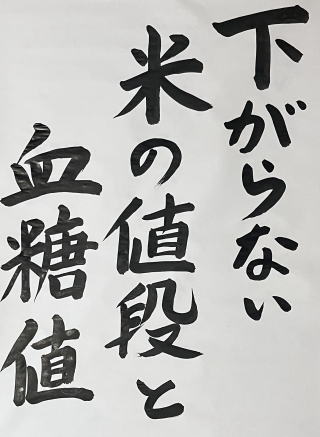 下がらない
米の値段と
血糖値